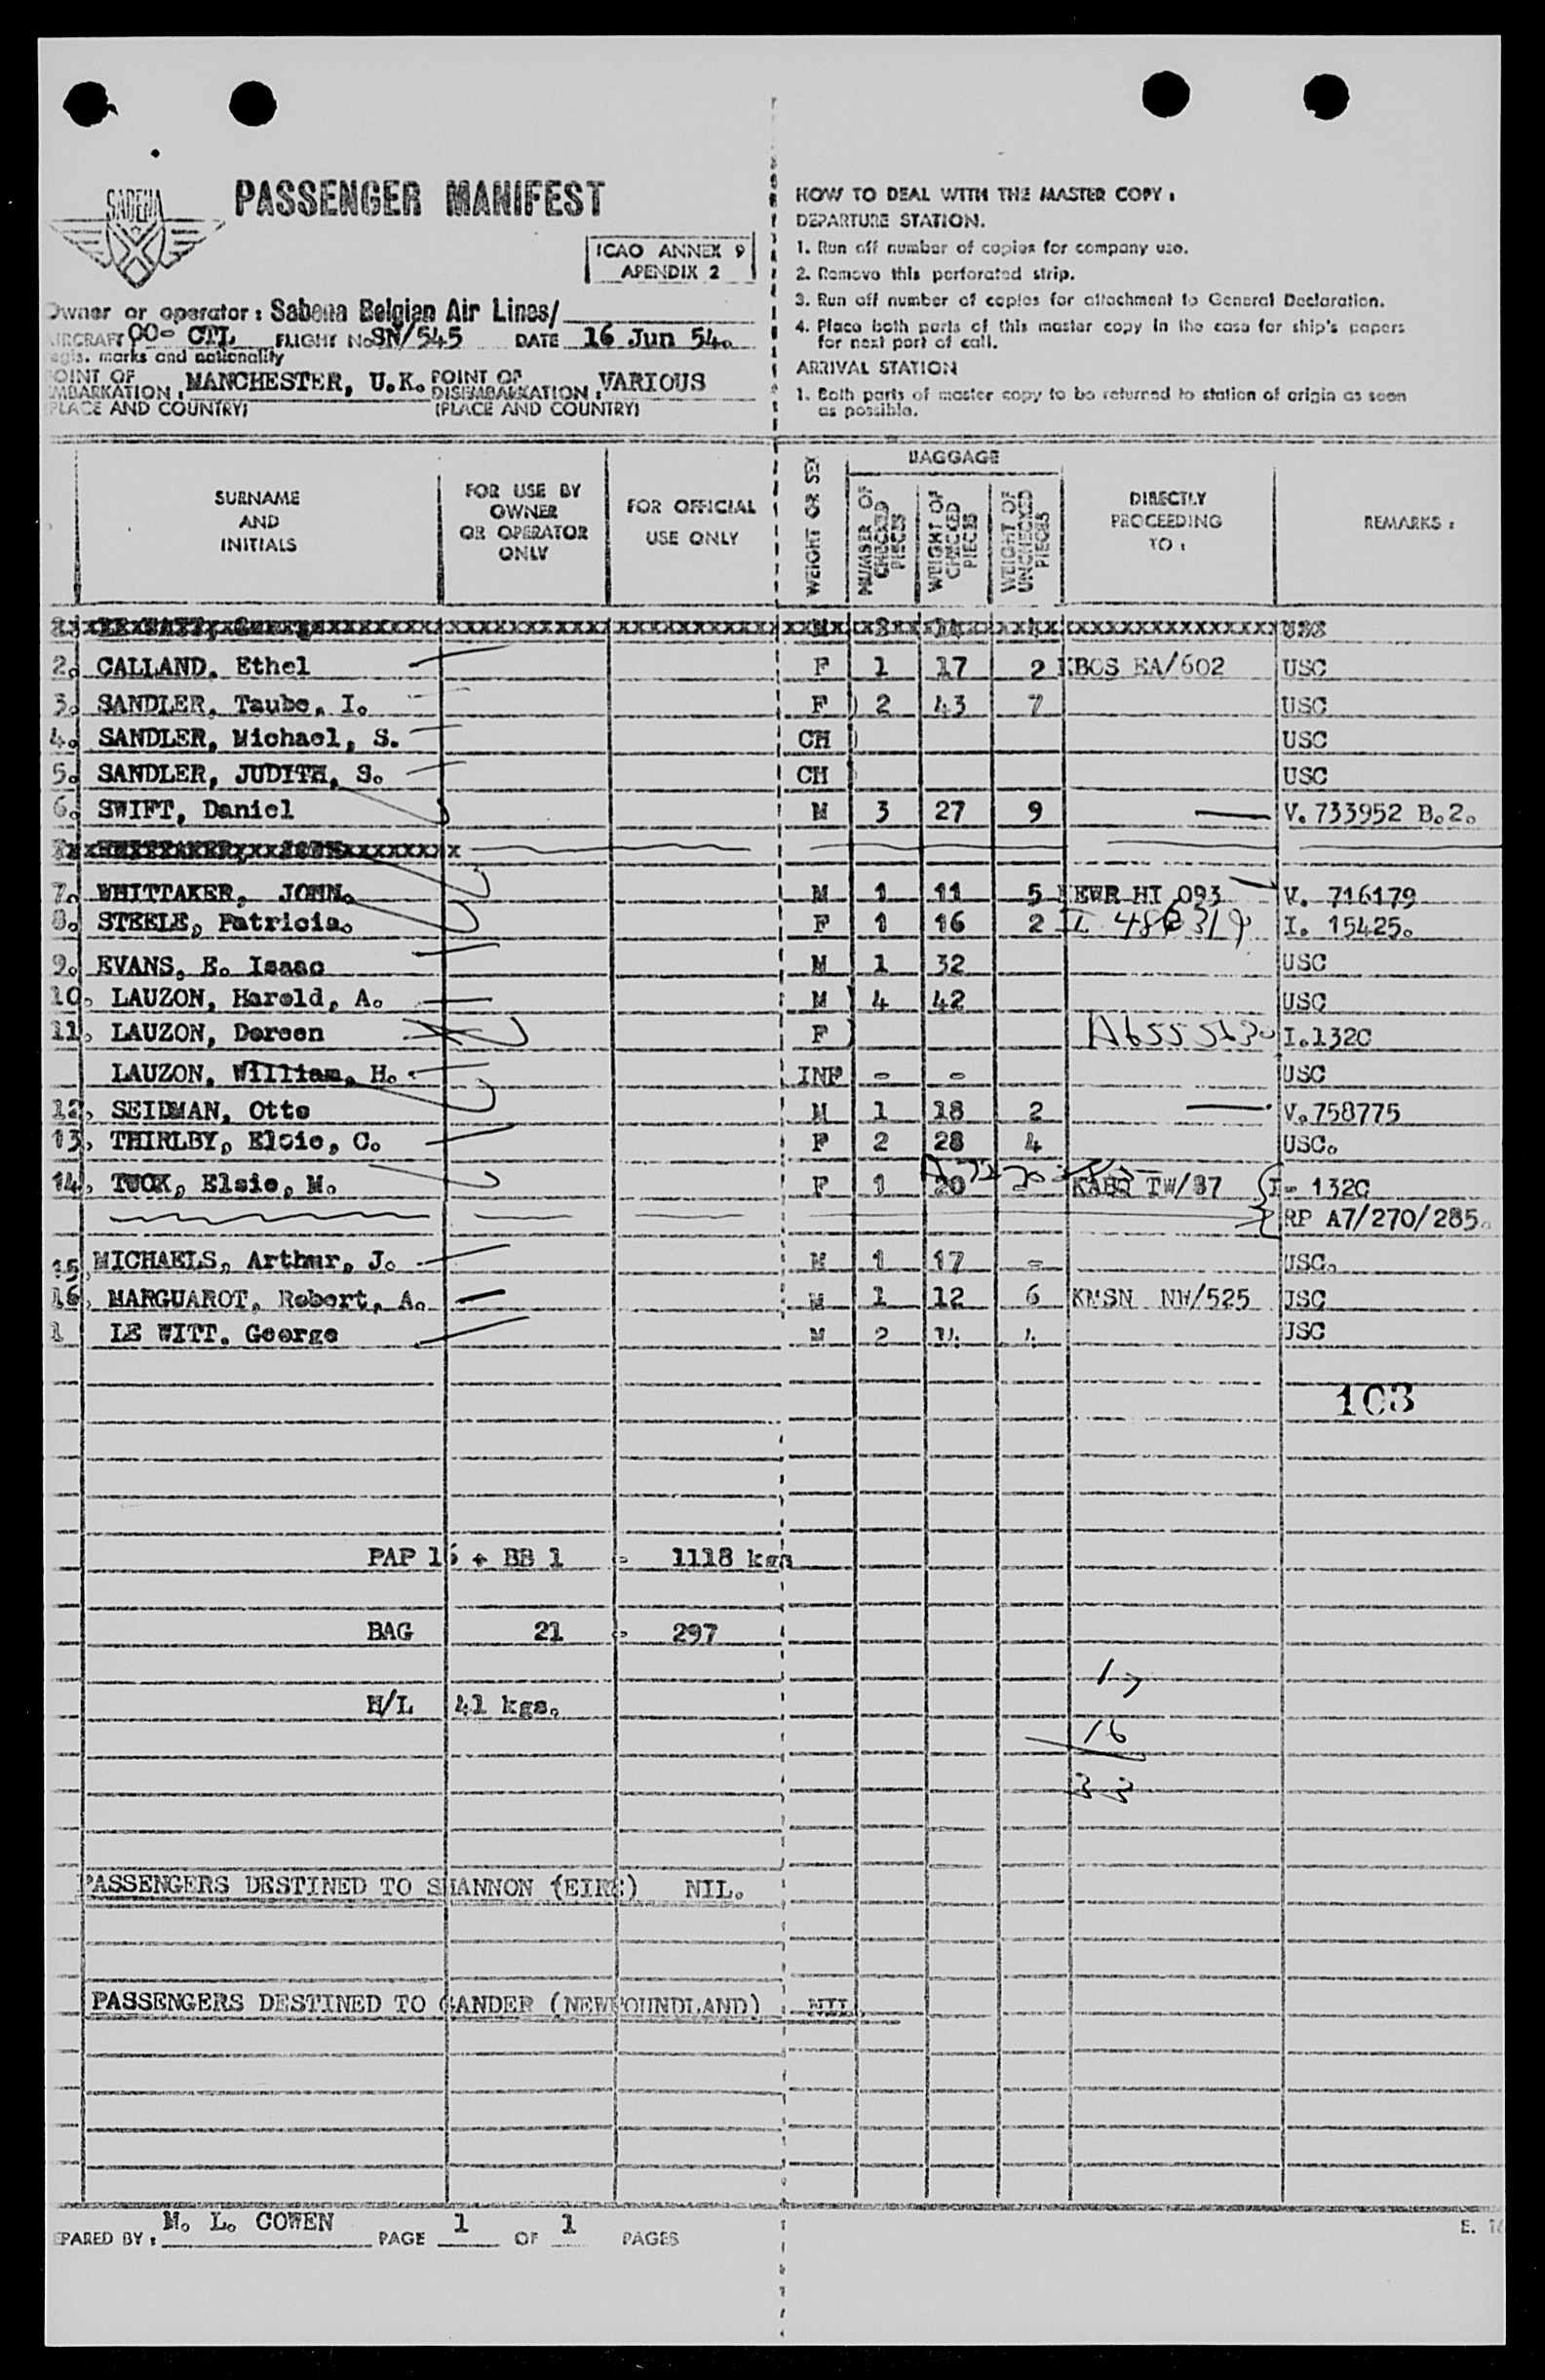 SABENA
PASSENGER MANIFEST
ICAO ANNEX 9
APENDIX 2
Owner or operator: Sabena Belgian Air Lines/
AIRCRAFT OO- CTL FLIGHT No SN/545 DATE 16 Jun 54.
regis. marks and nationality
POINT OF EMBARKATION: MANCHESTER, U.K. POINT OF DISEMBARKATION: VARIOUS
(PLACE AND COUNTRY) (PLACE AND COUNTRY)
HOW TO DEAL WITH THE MASTER COPY:
DEPARTURE STATION.
1. Run off number of copies for company use.
2. Remove this perforated strip.
3. Run off number of copies for attachment to General Declaration.
4. Place both parts of this master copy in the case for ship's papers
for next port of call.
ARRIVAL STATION
1. Both parts of master copy to be returned to station of origin as soon
as possible.
SURNAME AND INITIALS
FOR USE BY OWNER OR OPERATOR ONLY
FOR OFFICIAL USE ONLY
WEIGHT OR SEX
BAGGAGE
NUMBER OF CHECKED PIECES
WEIGHT OF CHECKED PIECES
WEIGHT OF UNCHECKED PIECES
DIRECTLY PROCEEDING TO:
REMARKS:
2. CALLAND, Ethel F 1 17 2 KBOS EA/602 USC
3. SANDLER, Taube, I. F ) 2 43 7 USC
4. SANDLER, Michael, S. CH ) USC
5. SANDLER, JUDITH, S. CH ) USC
6. SWIFT, Daniel M 3 27 9 V. 733952 B.2.
7. WHITTAKER, JOHN. M 1 11 5 KEWR HI 093 V. 716179
8. STEELE, Patricia. F 1 16 2 I. 15425.
9. EVANS, E. Isaac M 1 32 USC
10. LAUZON, Harold, A. M ) 4 42 USC
11. LAUZON, Doreen F ) I.132C
LAUZON, William, H. INF - - USC
12. SEIDMAN, Otto M 1 18 2 V.758775
13. THIRLBY, Elsie, C. F 2 28 4 USC.
14. TUCK, Elsie, M. F 1 20 - KABQ TW/87 I- 132C
RP A7/270/285.
15. MICHAELS, Arthur, J. M 1 17 - USC.
16. MARGUAROT, Robert, A. M 1 12 6 KMSN NW/525 USC
1 LE WITT. George M 2 14 4 USC
103
PAP 16 + BB 1 = 1118 kgs
BAG 21 = 297
17
H/L 41 kgs.
16
33
PASSENGERS DESTINED TO SHANNON (EIRE) NIL.
PASSENGERS DESTINED TO GANDER (NEWFOUNDLAND) NIL.
PREPARED BY: M. L. COWEN PAGE 1 OF 1 PAGES